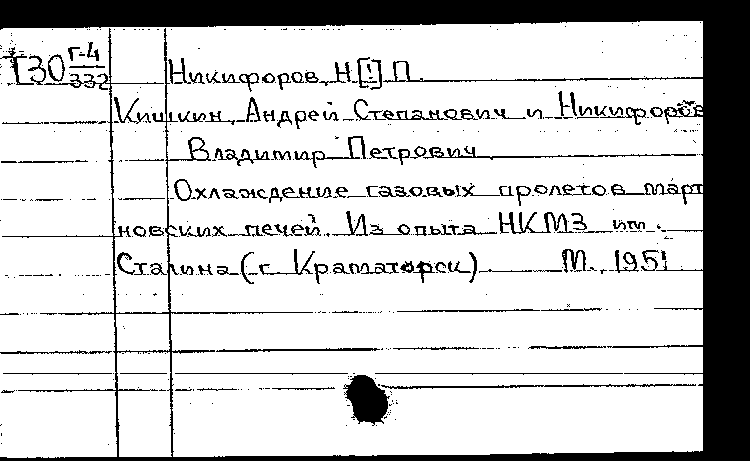 Г30 Г-4/332 Никифоров, Н[!] П.
Кишкин, Андрей Степанович и Никифоров
Владимир Петрович
Охлаждение газовых пролетов март
новских печей. Из опыта НКМЗ им.
Сталина (г. Краматорск) М., 1951